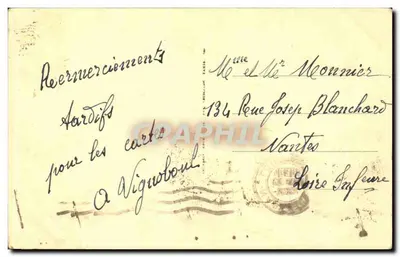 Remerciements
tardifs
pour les cartes
A Vignoboul
Mme et Mr Monnier
134 Rue Josep Blanchard
Nantes
Loire Infeure
CPHARTIE